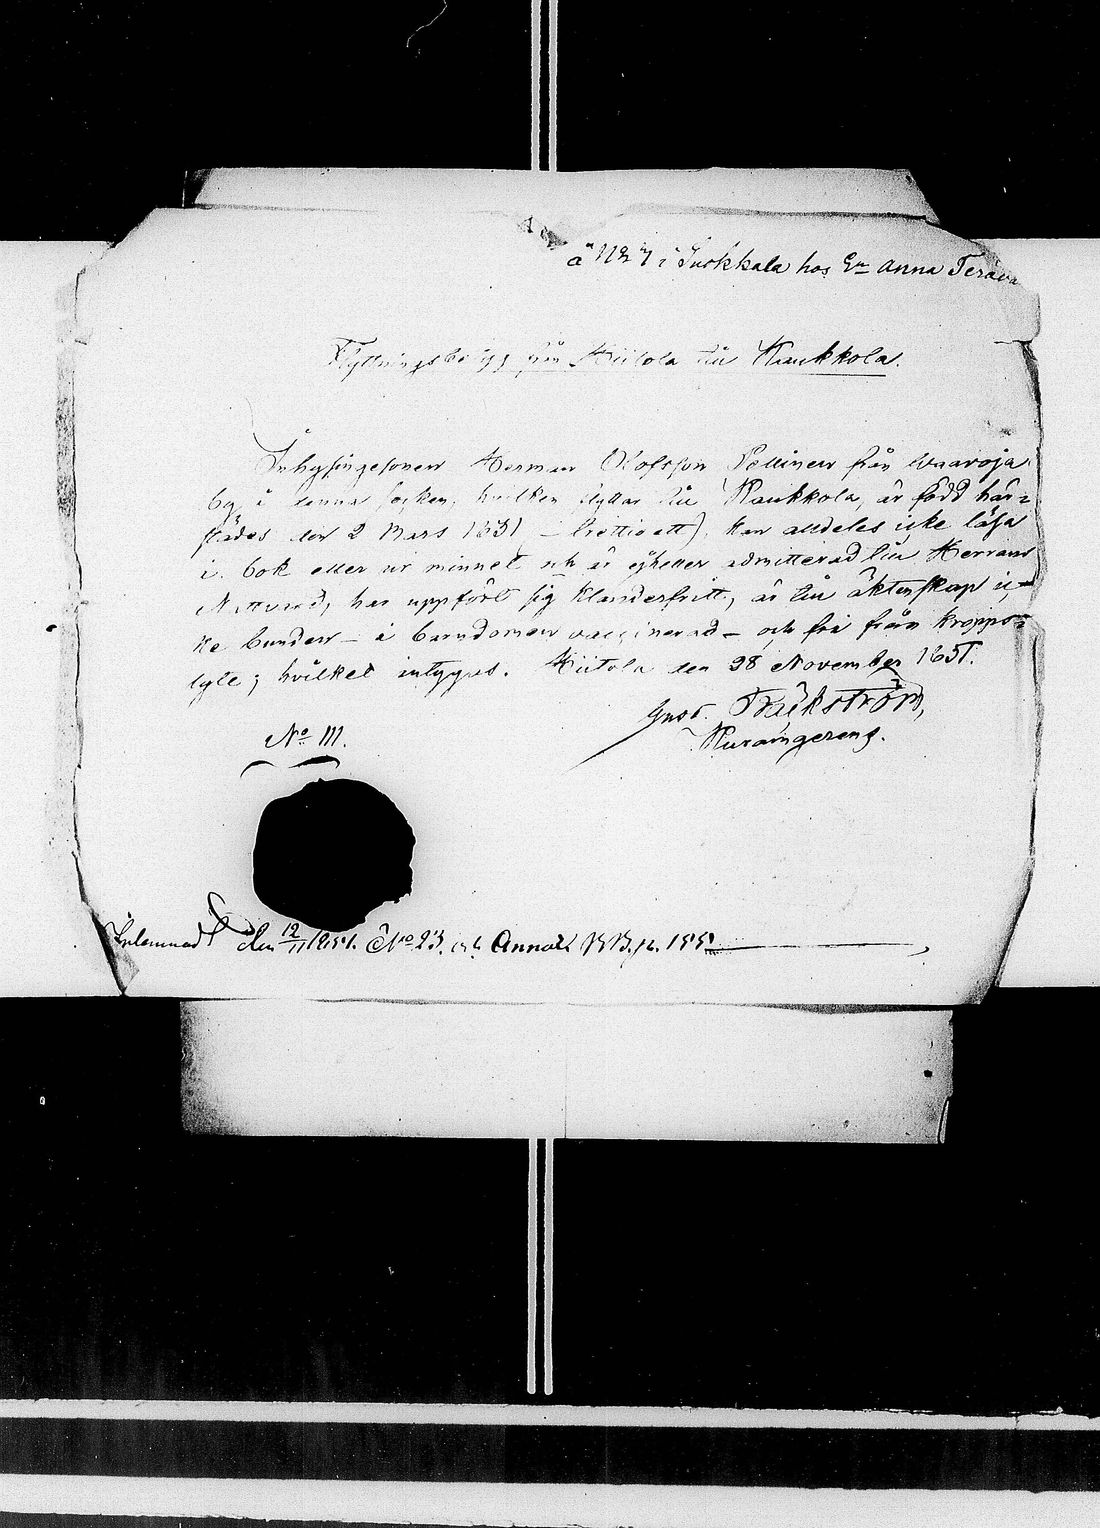 å No 7 i Surkkala hos En Anna Teräva
Flyttningsbetyg från Hiitola till Kaukkola.
Inhysingesonen Herman Olofsson Pellinen från Waaroja
by i denna socken, hvilken flyttar till Kaukkola, är född här-
städes den 2 Mars 1831 (trettioett), kan alldeles icke läsa
i bok eller ur minnet och är ej heller admitterad till Herrans
Nattvard, har uppfört sig klanderfritt, är till äktenskap ic-
ke bunden - i barndomen vaccinerad - och fri från kropps-
lyte; hvilket intygas. Hiitola den 28 November 1851.
Gust. Bäckström,
No 111.
Inlemnad den 12/11 1851. No 23. och Annot.